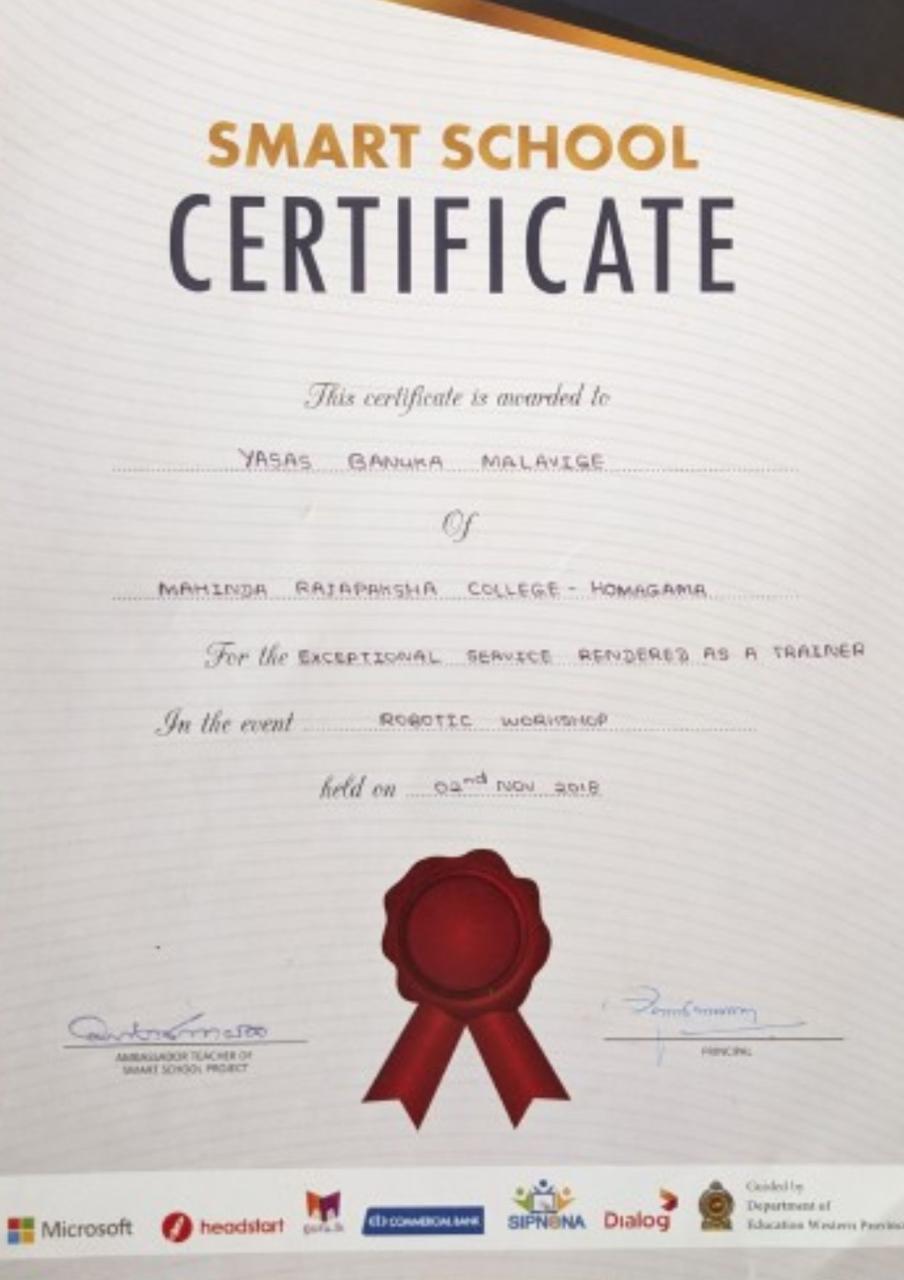 SMART SCHOOL
CERTIFICATE
This certificate is awarded to
YASAS BANUKA MALAVIGE
Of
MAHINDA RAJAPAKSHA COLLEGE - HOMAGAMA
For the EXCEPTIONAL SERVICE RENDERED AS A TRAINER
In the event ROBOTIC WORKSHOP
held on 02nd NOV 2018
AMBASSADOR TEACHER OF
SMART SCHOOL PROJECT
PRINCIPAL
Microsoft
headstart
guru.lk
COMMERCIAL BANK
SIPNENA
Dialog
Guided by
Department of
Education Western Province